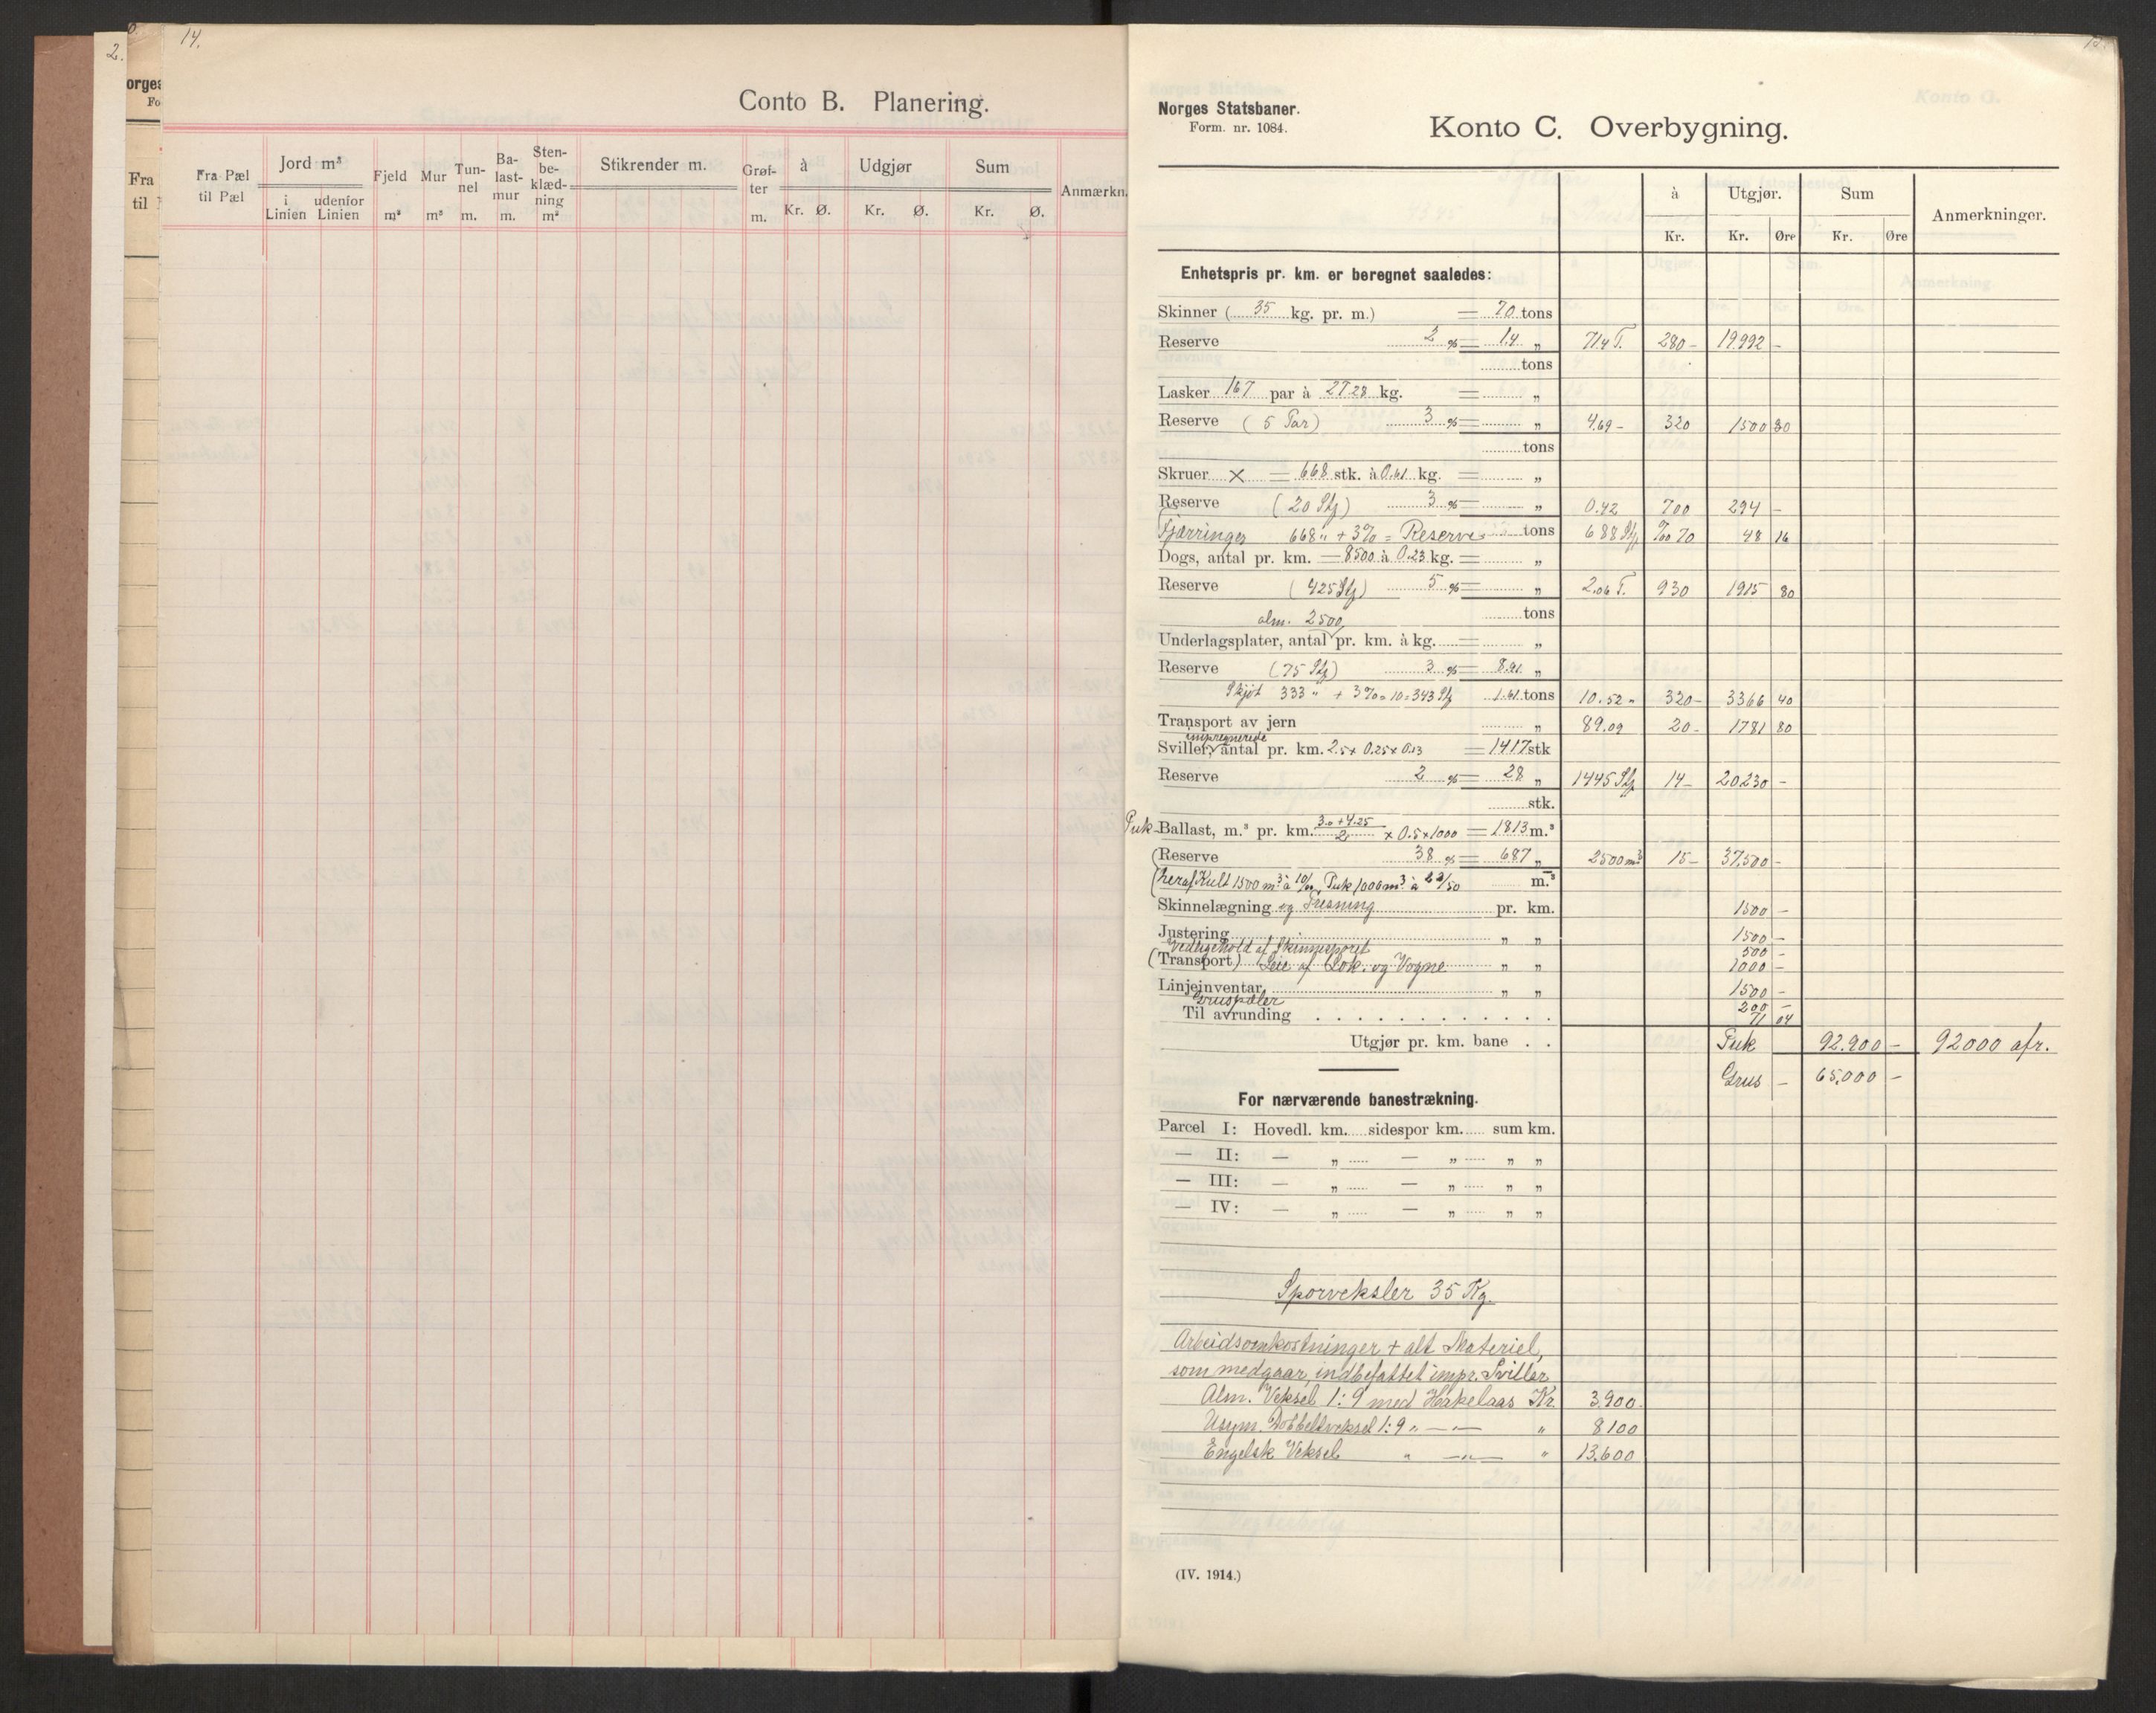 2.
orges
Fo
Fra
til
14.
Conto B. Planering.
Fra Pæl til Pæl
Jord m³
i Linien
udenfor Linien
Fjeld m³
Mur m³
Tunnel m.
Balastmur m.
Stenbeklædning m²
Stikrender m.
Grøfter m.
à Kr. Ø.
Udgjør Kr. Ø.
Sum Kr. Ø.
Anmærkn.
Norges Statsbaner.
Form. nr. 1084.
Konto C. Overbygning.
à Kr.
Utgjør. Kr. Øre
Sum Kr. Øre
Anmerkninger.
Enhetspris pr. km. er beregnet saaledes:
Skinner (35 kg. pr. m.) = 70 tons
Reserve 2 % = 1.4 „ 71.4 T. 280 - 19.992 -
tons
Lasker 167 par à 27.28 kg. = „
Reserve (5 Par) 3 % = „ 4.69 - 320 1500 80
tons
Skruer × = 668 stk. à 0.61 kg. = „
Reserve (20 Stk) 3 % = „ 0.42 700 294 -
Fjærringer 668 " + 3% = Reserve tons 688 Stk %00 70 48 16
Dogs, antal pr. km. = 8500 à 0.23 kg. = „
Reserve (425 Stk) 5 % = „ 2.06 T. 930 1915 80
alm. 2500 tons
Underlagsplater, antal pr. km. à kg. = „
Reserve (75 Stk) 3 % = 8.91 „
Skjøt 333 " + 3% = 10 = 343 Stk 1.61 tons 10.52 " 320 - 3366 40
Transport av jern „ 89.09 20 - 1781 80
impregnerede
Sviller, antal pr. km. 2.5 × 0.25 × 0.13 = 1417 stk
Reserve 2 % = 28 „ 1445 Stk 14 - 20230 -
stk.
Puk-Ballast, m.³ pr. km. 3.0 + 4.25 / 2 × 0.5 × 1000 = 1813 m.³
(Reserve 38 % = 687 „ 2500 m³ 15 - 37.500 -
(heraf Kult 1500 m³ à 10/00, Puk 1000 m³ à 22/50 m.³
Skinnelægning og Presning pr. km. 1500 -
Justering „ „ 1500 -
Vedligehold af Skinnesporet 500 -
(Transport) Leie af Lok. og Vogne „ „ 2000 -
Linjeinventar „ „ 1500 -
Gruspæler 200 -
Til avrunding 71 04
Utgjør pr. km. bane Puk 92.900 - 92000 afr.
Grus - 65.000 -
For nærværende banestrækning.
Parcel I: Hovedl. km. sidespor km. sum km.
— II: — „ — „ „ „
— III: — „ — „ „ „
— IV: — „ — „ „ „
Sporveksler 35 Kg.
Arbeidsomkostninger + alt Materiel,
som medgaar, indbefattet impr. Sviller
Alm. Veksel 1:9 med Hakelaas Kr. 3.900.
Usym. Dobbeltveksel 1:9 " — " — " 8100
Engelsk Veksel " — " — " 13.600
(IV. 1914.)